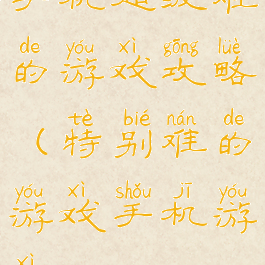 de yóu xì gōng lüè
的游戏攻略
tè bié nán de
（特别难的
yóu xì shǒu jī yóu
游戏手机游
xì